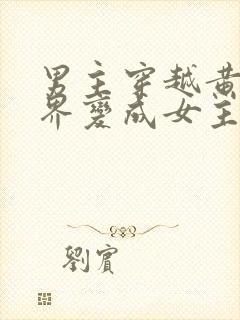 男主穿越黄
界变成女主
劉賓